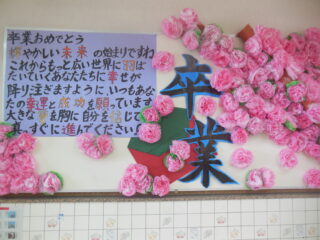 卒業おめでとう
輝やかしい未来の始まりですね
これからもっと広い世界に羽ば
たいていくあなたたちに幸せが
降り注ぎますように、いつもあな
たの幸運と成功を願っています
大きな夢を胸に自分を信じて
真っすぐに進んでください!
卒業